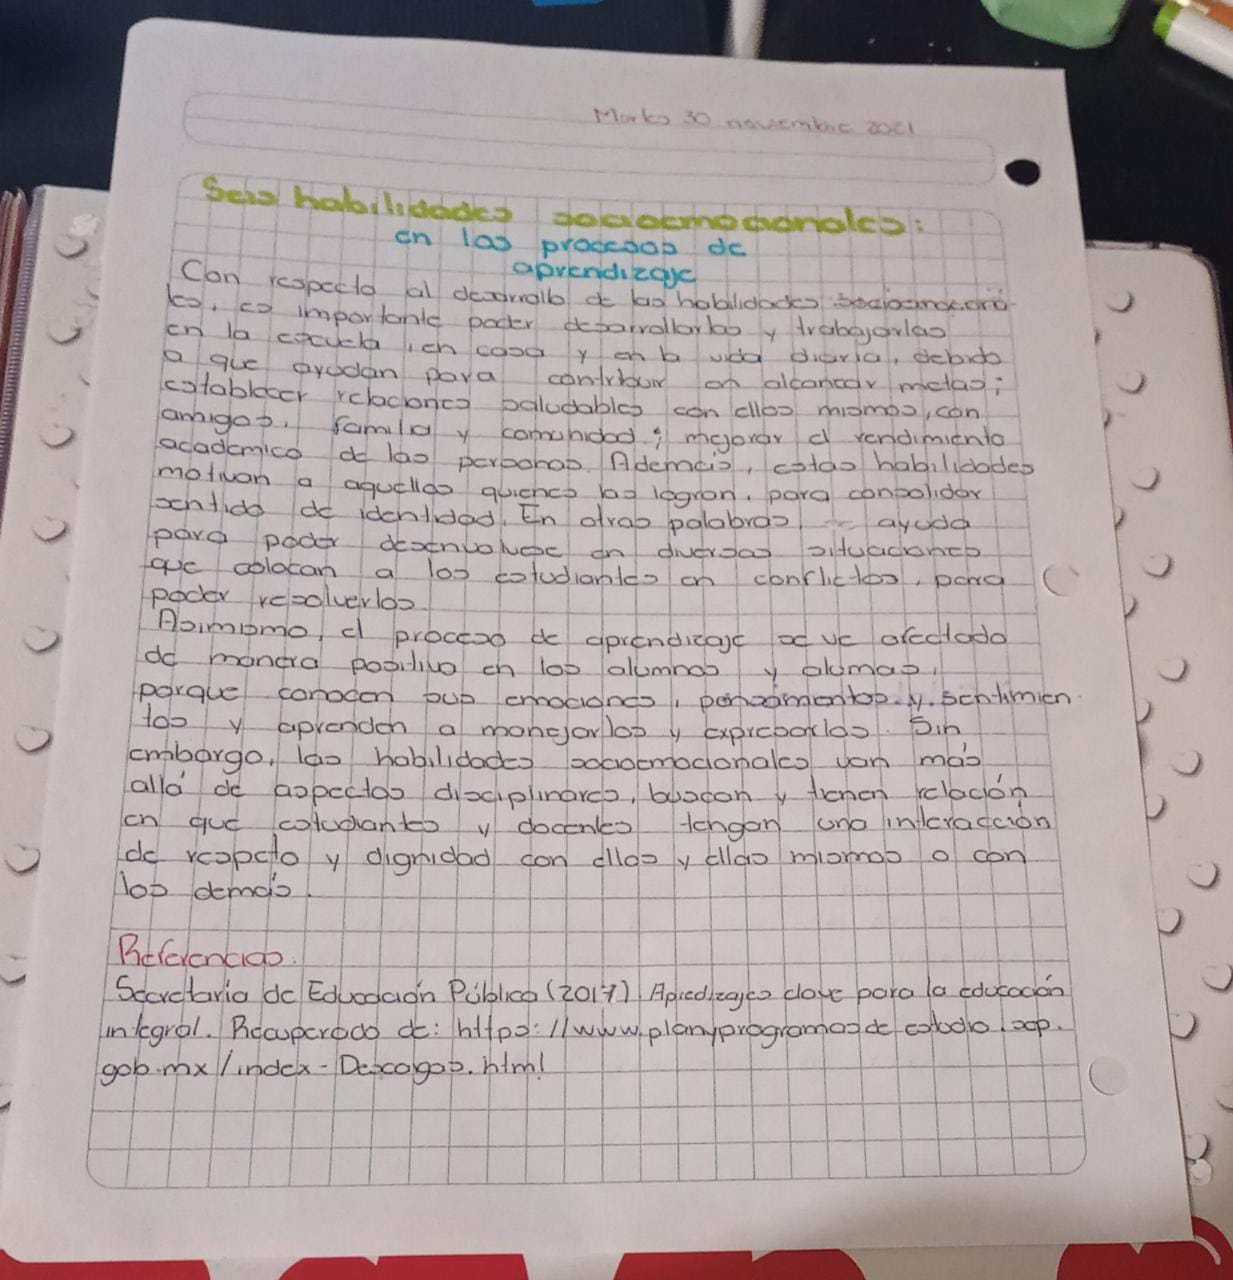 Martes 30 noviembre 2021
Seis habilidades socioemocionales:
en los procesos de
aprendizaje
Con respecto al desarrollo de las habilidades socioemociona
les, es importante poder desarrollarlas y trabajarlas
en la escuela, en casa y en la vida diaria, debido
a que ayudan para contribuir en alcanzar metas;
establecer relaciones saludables con ellos mismos, con
amigos, familia y comunidad; mejorar el rendimiento
academico de las personas. Ademais, estas habilidades
motivan a aquellas quienes las logran, para consolidar
sentido de identidad. En otras palabras, ayuda
para poder desenvolverse en diversas situaciones
que colocan a los estudiantes en conflictos, para
poder resolverlos.
Asimismo, el proceso de aprendizaje se ve afectado
de manera positiva en los alumnos y alumas,
porque conocen sus emociones, pensamientos y sentimien
tos y aprenden a manejarlos y expresarlas. Sin
embargo, las habilidades socioemocionales van más
allá de aspectos disciplinares, buscan y tienen relación
en que estudiantes y docentes tengan una interacción
de respeto y dignidad con ellos y ellas mismos o con
los demás.
Referencias.
Secretaria de Educación Pública (2017) Apredizajes clave para la educación
integral. Recuperado de: https://www.planyprogramasde estudio.sep.
gob.mx/index-Descagas.html